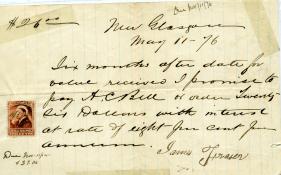 Due Nov 11/76
$26.00 New Glasgow
May 11 - 76
Six months after date for
value received I promise to
pay A. C. Bell or order Twenty
Six Dollars with interest
at rate of eight per cent per
annum.
James Fraser
Due Nov